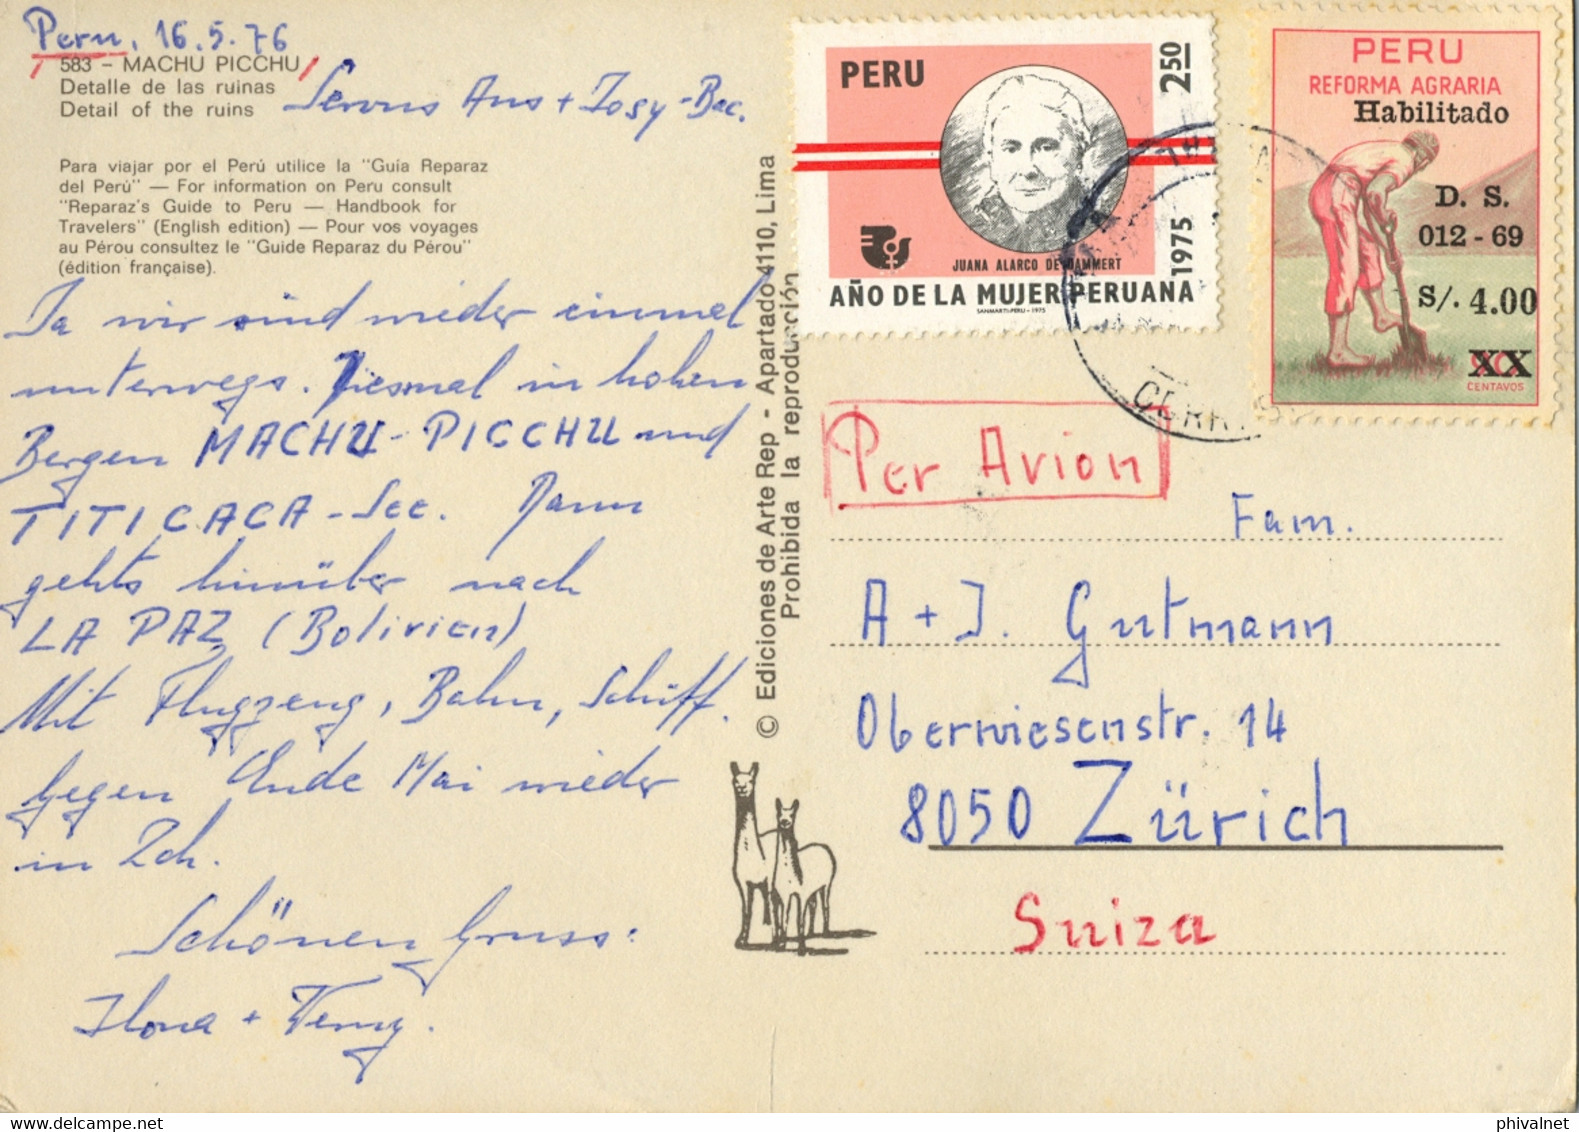 Peru, 16.5.76
583 - MACHU PICCHU
Detalle de las ruinas
Detail of the ruins
Servus Ans + Josy-Bac.
Para viajar por el Perú utilice la "Guía Reparaz
del Perú" — For information on Peru consult
"Reparaz's Guide to Peru — Handbook for
Travelers" (English edition) — Pour vos voyages
au Pérou consultez le "Guide Reparaz du Pérou"
(édition française).
Ja wir sind wieder einmal
unterwegs. Diesmal in hohen
Bergen MACHU-PICCHU und
TITICACA-See. Dann
gehts hinüber nach
LA PAZ (Bolivien)
Mit Flugzeug, Bahn, Schiff.
gegen Ende Mai wieder
in Zch.
Schönen Gruss:
Ilona +
© Ediciones de Arte Rep - Apartado 4110, Lima
Prohibida la reproducción
PERU
2 50
JUANA ALARCO DE DAMMERT
1975
AÑO DE LA MUJER PERUANA
SANMARTI-PERU-1975
PERU
REFORMA AGRARIA
Habilitado
D. S.
012 - 69
S/. 4.00
XX
CENTAVOS
Per Avion
Fam.
A + J. Gutmann
Oberwiesenstr. 14
8050 Zürich
Suiza
phivalnet